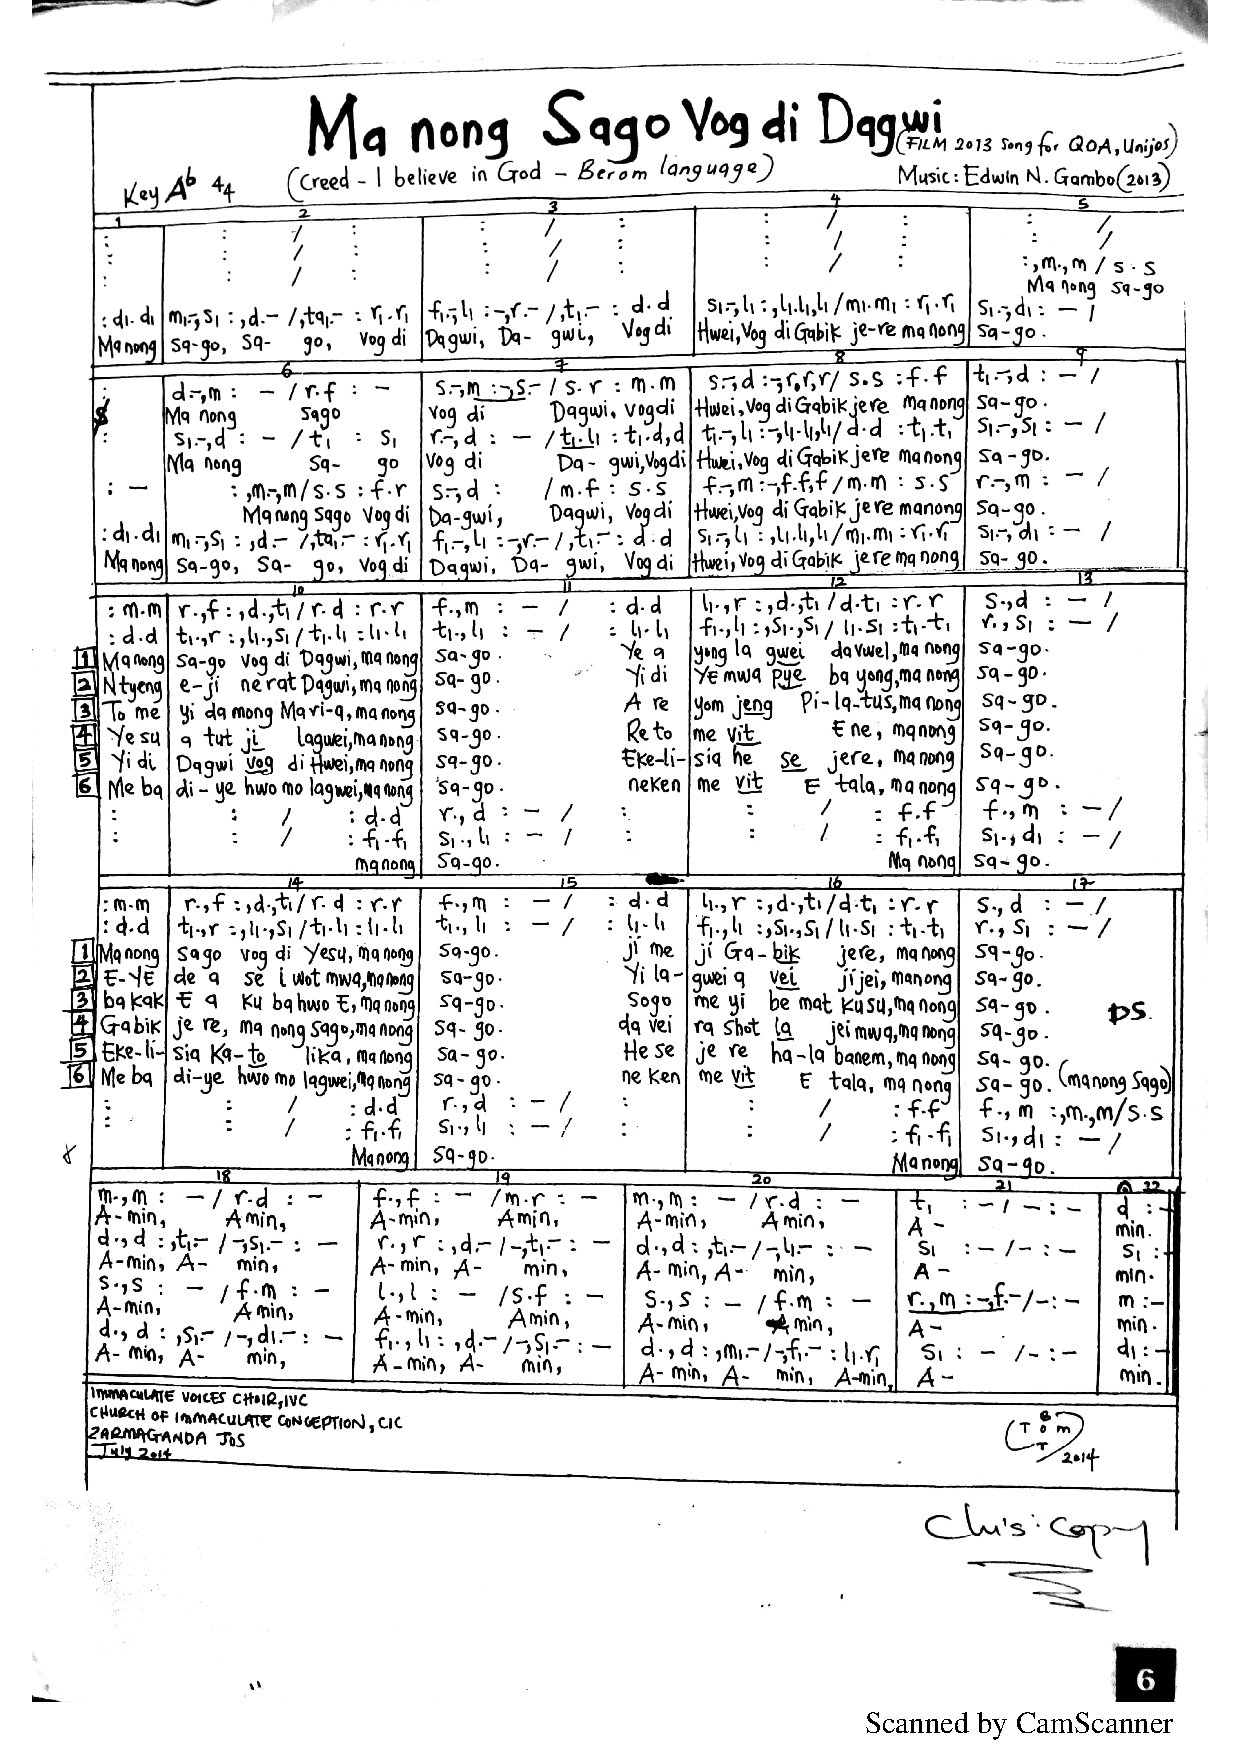 Ma nong Sago Vog di Dagwi
(FILM 2013 Song for QOA, Unijos)
(Creed - I believe in God - Berom language)
Key Ab 4/4
Music: Edwin N. Gambo (2013)
1 2 3 4 5
: : / : : / : : / : : /
: : / : : / : : / : : /
: : / : : / : : / : :,m.,m / s.s
Ma nong Sa-go
:d₁.d₁ m₁.-,s₁ :,d.- /,ta₁.- : r₁.r₁ f₁.-,l₁ :-,r.- /,t₁.- : d.d s₁.-,l₁ :,l₁.l₁,l₁ / m₁.m₁ : r₁.r₁ s₁.-,d₁ : - /
Ma nong Sa-go, Sa- go, Vog di Dagwi, Da- gwi, Vog di Hwei, Vog di Gabik je-re ma nong Sa-go.
6 7 8 9
: d.-,m : - / r.f : - s.-,m :-,s.- / s.r : m.m s.-,d :-,r,r,r / s.s : f.f t₁.-,d : - /
Ma nong Sago Vog di Dagwi, Vog di Hwei, Vog di Gabik jere ma nong Sa-go.
: s₁.-,d : - / t₁ : s₁ r.-,d : - / t₁.l₁ : t₁.d,d t₁.-,l₁ :-,l₁.l₁,l₁ / d.d : t₁.t₁ s₁.-,s₁ : - /
Ma nong Sa- go Vog di Da- gwi, Vog di Hwei, Vog di Gabik jere ma nong Sa-go.
: - :,m.-,m / s.s : f.r s.-,d : / m.f : s.s f.-,m :-,f.f,f / m.m : s.s r.-,m : - /
Ma nong Sago Vog di Da-gwi, Dagwi, Vog di Hwei, Vog di Gabik jere ma nong Sa-go.
:d₁.d₁ m₁.-,s₁ :,d.- /,ta₁.- : r₁.r₁ f₁.-,l₁ :-,r.- /,t₁.- : d.d s₁.-,l₁ :,l₁.l₁,l₁ / m₁.m₁ : r₁.r₁ s₁.-,d₁ : - /
Ma nong Sa-go, Sa- go, Vog di Dagwi, Da- gwi, Vog di Hwei, Vog di Gabik jere ma nong Sa-go.
10 11 12 13
:m.m r.,f :,d.,t₁ / r.d : r.r f.,m : - / : d.d l₁.,r :,d.,t₁ / d.t₁ : r.r s.,d : - /
:d.d t₁.,r :,l₁.,s₁ / t₁.l₁ : l₁.l₁ t₁.,l₁ : - / : l₁.l₁ f₁.,l₁ :,s₁.,s₁ / l₁.s₁ : t₁.t₁ r.,s₁ : - /
1 Ma nong Sa-go vog di Dagwi, ma nong Sa-go. Ye a yong la gwei da vwel, ma nong Sa-go.
2 Ntyeng e-ji ne rat Dagwi, ma nong Sa-go. Yi di YE mwa pye ba yong, ma nong Sa-go.
3 To me yi da mong Mari-a, ma nong Sa-go. A re yom jeng Pi-la-tus, ma nong Sa-go.
4 Yesu a tut ji lagwei, ma nong Sa-go. Re to me vit E ne, ma nong Sa-go.
5 Yi di Dagwi vog di Hwei, ma nong Sa-go. Eke-li- sia he se jere, ma nong Sa-go.
6 Me ba di-ye hwo mo lagwei, ma nong Sa-go. neken me vit E tala, ma nong Sa-go.
: : / : d.d r.,d : - / : : / : f.f f.,m : - /
: : / : f₁.f₁ s₁.,l₁ : - / : : / : f₁.f₁ s₁.,d₁ : - /
ma nong Sa-go. Ma nong Sa-go.
14 15 16 17
:m.m r.,f :,d.,t₁ / r.d : r.r f.,m : - / : d.d l₁.,r :,d.,t₁ / d.t₁ : r.r s.,d : - /
:d.d t₁.,r :,l₁.,s₁ / t₁.l₁ : l₁.l₁ t₁.,l₁ : - / : l₁.l₁ f₁.,l₁ :,s₁.,s₁ / l₁.s₁ : t₁.t₁ r.,s₁ : - /
1 Ma nong Sago vog di Yesu, ma nong Sa-go. ji me ji Ga-bik jere, ma nong Sa-go.
2 E-YE de a se i wot mwa, ma nong Sa-go. Yi la- gwei a vei ji jei, ma nong Sa-go.
3 ba kak E a ku ba hwo E, ma nong Sa-go. Sogo me yi be mat kusu, ma nong Sa-go.
DS.
4 Gabik je re, ma nong Sago, ma nong Sa-go. da vei ra shot la jei mwa, ma nong Sa-go.
5 Eke-li- sia Ka-to lika, ma nong Sa-go. He se je re ha-la banem, ma nong Sa-go.
6 Me ba di-ye hwo mo lagwei, Ma nong Sa-go. ne ken me vit E tala, ma nong Sa-go. (ma nong Sago)
: : / : d.d r.,d : - / : : / : f.f f.,m :,m.,m / s.s
: : / : f₁.f₁ s₁.,l₁ : - / : : / : f₁.f₁ s₁.,d₁ : - /
Ma nong Sa-go. Ma nong Sa-go.
18 19 20 21 22
m.,m : - / r.d : - f.,f : - / m.r : - m.,m : - / r.d : - t₁ : - / - : - d :-
A-min, Amin, A-min, Amin, A-min, Amin, A- min.
d.,d :,t₁.- / -,s₁.- : - r.,r :,d.- / -,t₁.- : - d.,d :,t₁.- / -,l₁.- : - s₁ : - / - : - s₁ :-
A-min, A- min, A-min, A- min, A-min, A- min, A- min.
s.,s : - / f.m : - l.,l : - / s.f : - s.,s : - / f.m : - r.,m :-,f.- / - : - m :-
A-min, A min, A-min, Amin, A-min, Amin, A- min.
d.,d :,s₁.- / -,d₁.- : - f₁.,l₁ :,d.- / -,s₁.- : - d.,d :,m₁.- / -,f₁.- : l₁.r₁ s₁ : - / - : - d₁ :-
A-min, A- min, A-min, A- min, A-min, A- min, A-min, A- min.
IMMACULATE VOICES CHOIR, IVC
CHURCH OF IMMACULATE CONCEPTION, CIC
ZARMAGANDA JOS
July 2014
B
T O M
T
2014
Chis: copy
6
Scanned by CamScanner